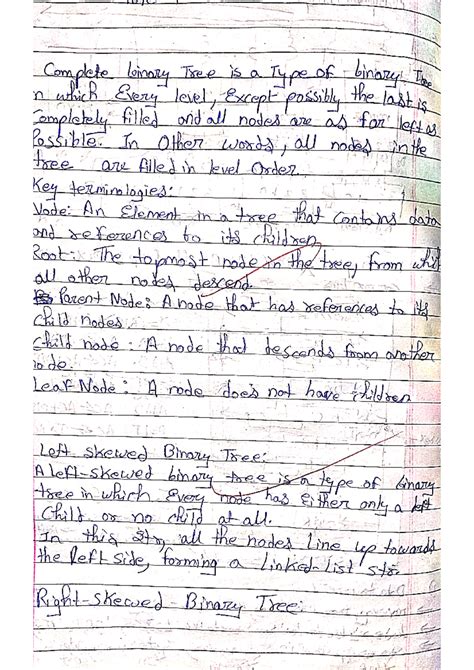 Complete binary Tree is a Type of binary Tree
n which Every level, Except possibly the last is
completely filled and all nodes are as far left as
Possible. In Other words, all nodes in the
tree are filled in level Order.
Key terminologies:
Node: An Element in a tree that contains data
and references to its children
Root: The topmost node in the tree, from whi
all other nodes descend.
Parent Node: A node that has references to its
child nodes.
child node: A node that descends from another
node.
Leaf Node: A node does not have children
Left skewed Binary Tree:
A left-skewed binary tree is a type of binary
tree in which Every node has Either only a left
child or no child at all.
In this str, all the nodes line up towards
the left side, forming a linked-list str.
Right-skewed Binary Tree: